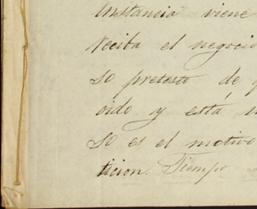 instancia viene
reciba el negocio
so pretesto de q
oido y está
so es el motivo
ticion. Tiempo